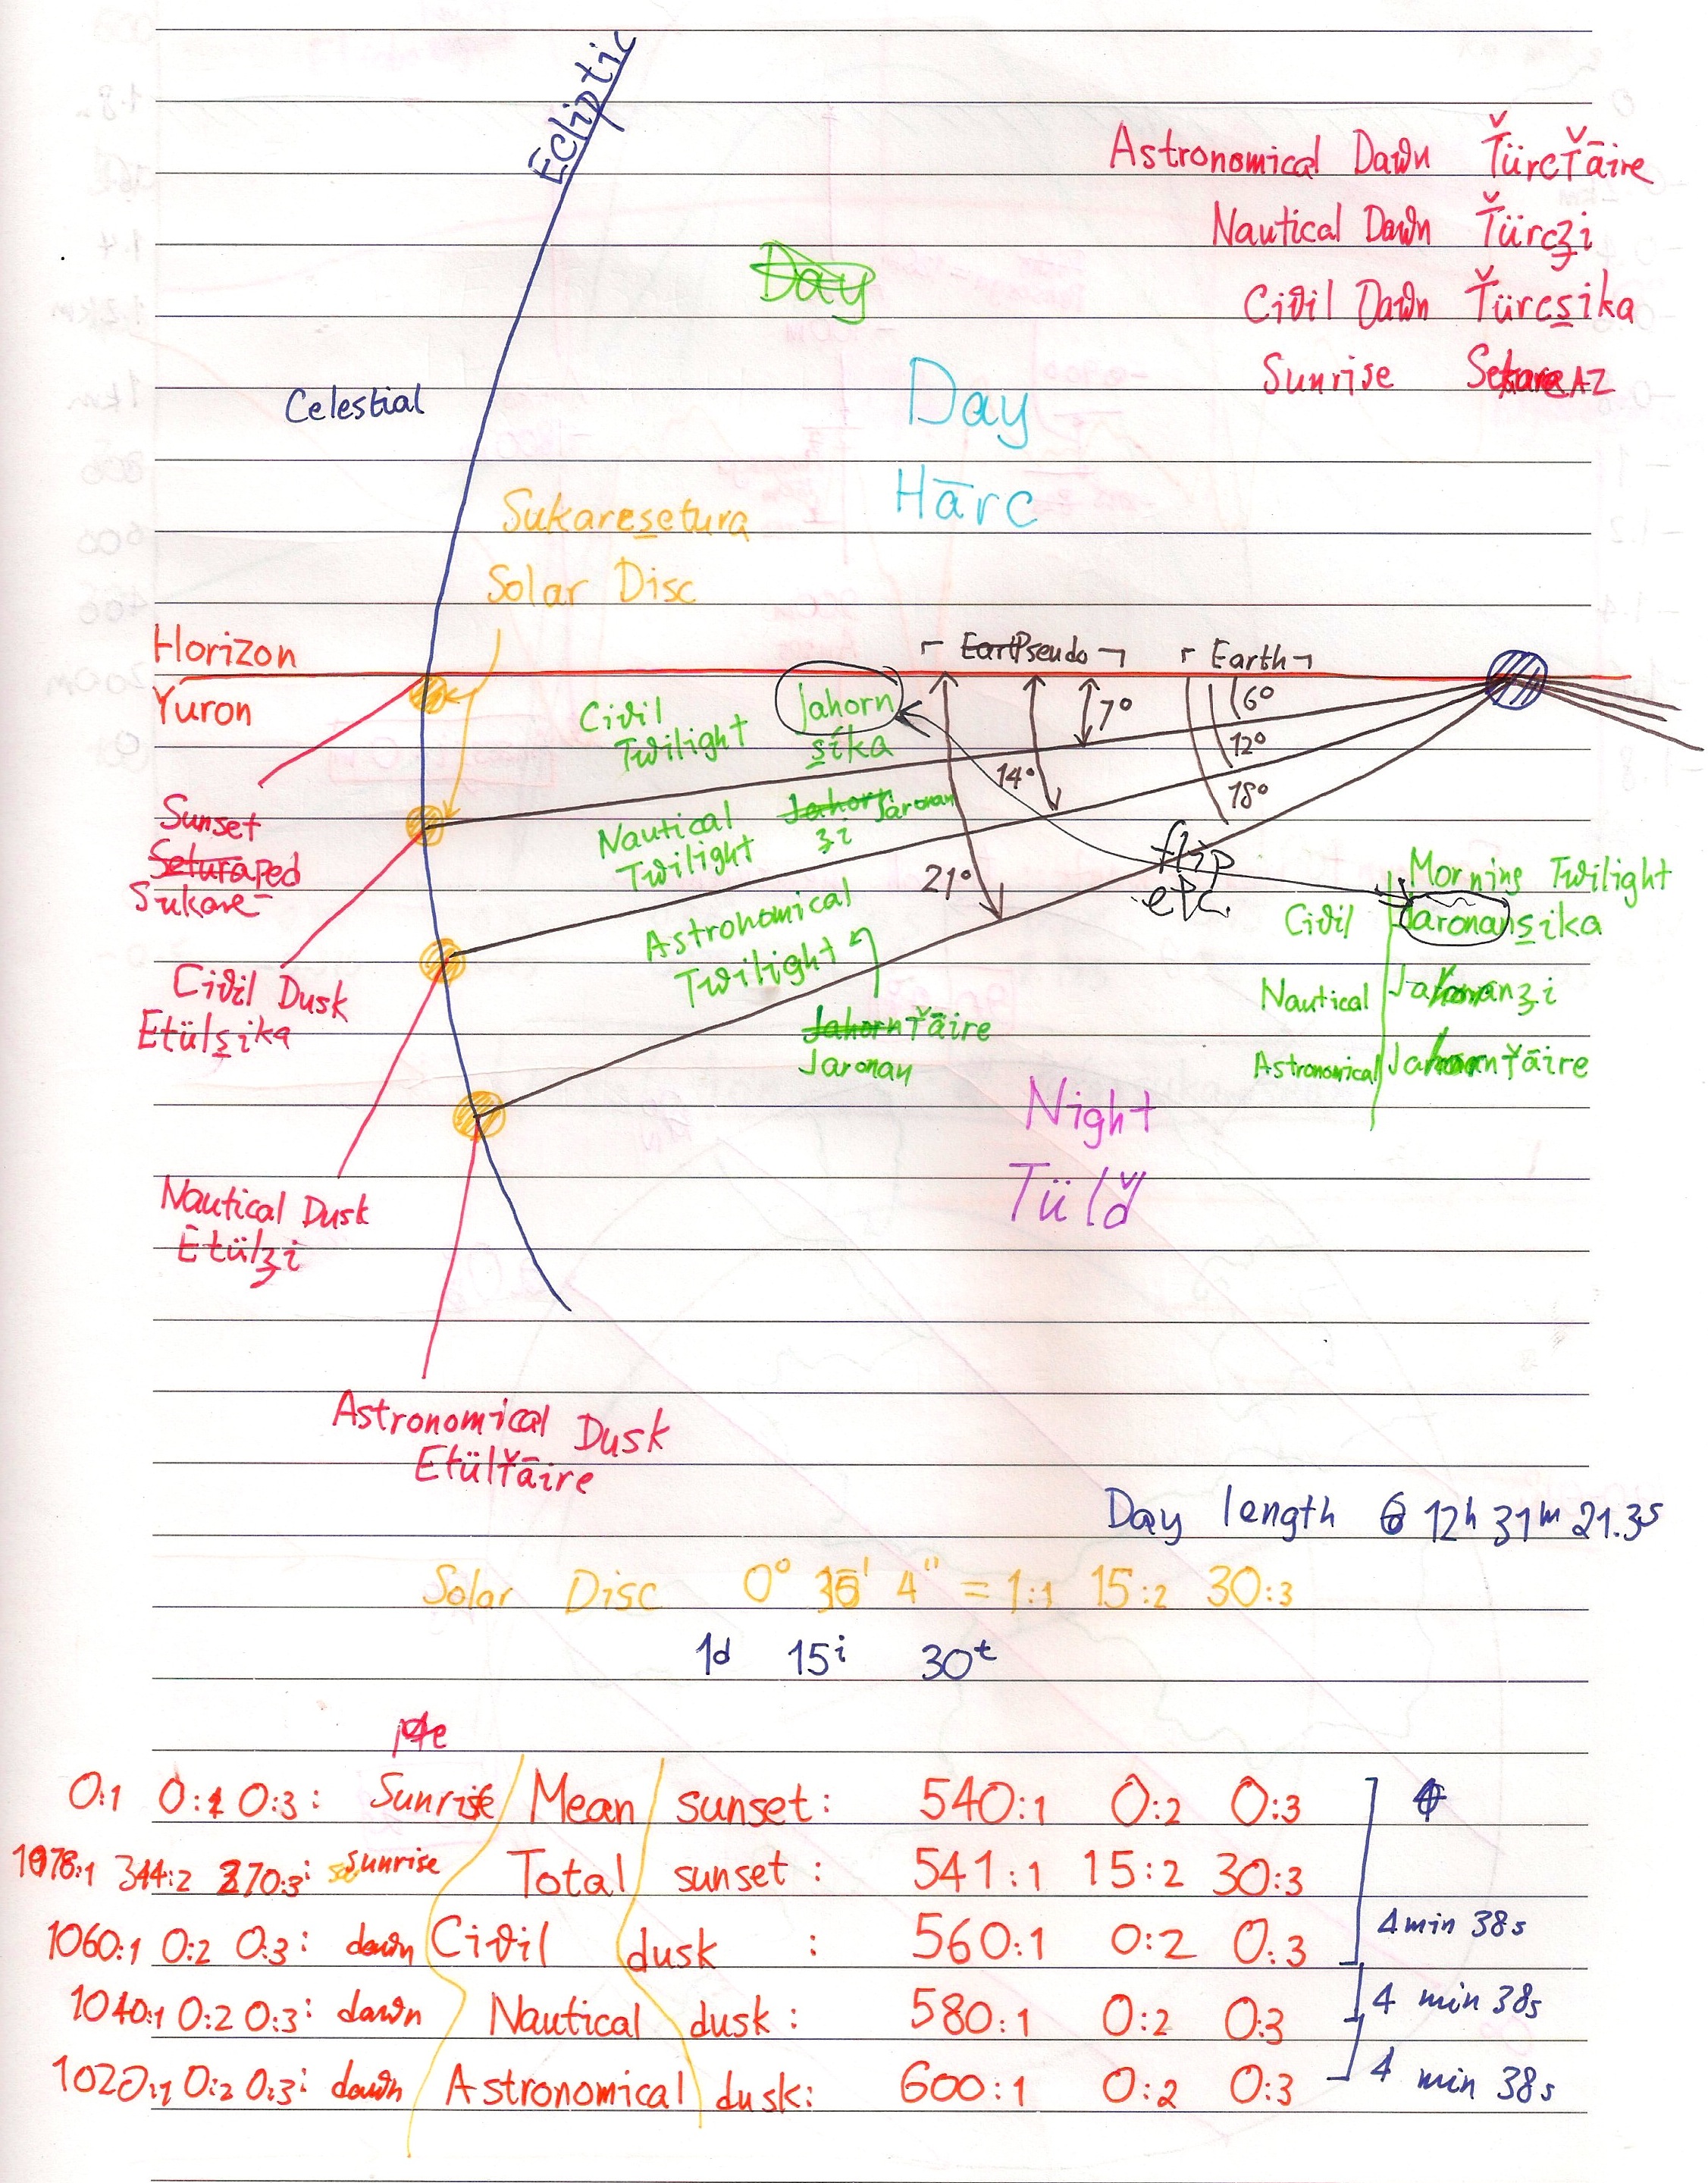 Ecliptic
Astronomical Dawn ŤürcŤāire
Nautical Dawn Ťürcʒi
Civil Dawn Ťürcs̲ika
Sunrise
Day
Day
Hārc
Celestial
Sukares̲etura
Solar Disc
Horizon
Yuron
Pseudo
Earth
6°
7°
12°
14°
18°
21°
Civil Twilight
Jahorn
s̲ika
Nautical Twilight
Jahorn Jaronan
ʒi
Astronomical Twilight
JahornŤāire
Jaronan
flip etc.
Morning Twilight
Civil Jaronans̲ika
Nautical
Astronomical
Sunset
Seturaped
Sukare-
Civil Dusk
Etüls̲ika
Nautical Dusk
Etülʒi
Astronomical Dusk
EtülŤāire
Night
Tülď
Day length 12h 31m 21.3s
Solar Disc 0° 4" = 1:1 15:2 30:3
1d 15i 30t
0:1 0:2 0:3: Sunrise Mean sunset: 540:1 0:2 0:3
1078:1 344:2 270:3: sunrise Total sunset: 541:1 15:2 30:3
1060:1 0:2 0:3: dawn Civil dusk : 560:1 0:2 0:3 4 min 38s
1040:1 0:2 0:3: dawn Nautical dusk: 580:1 0:2 0:3 4 min 38s
1020:1 0:2 0:3: dawn Astronomical dusk: 600:1 0:2 0:3 4 min 38s